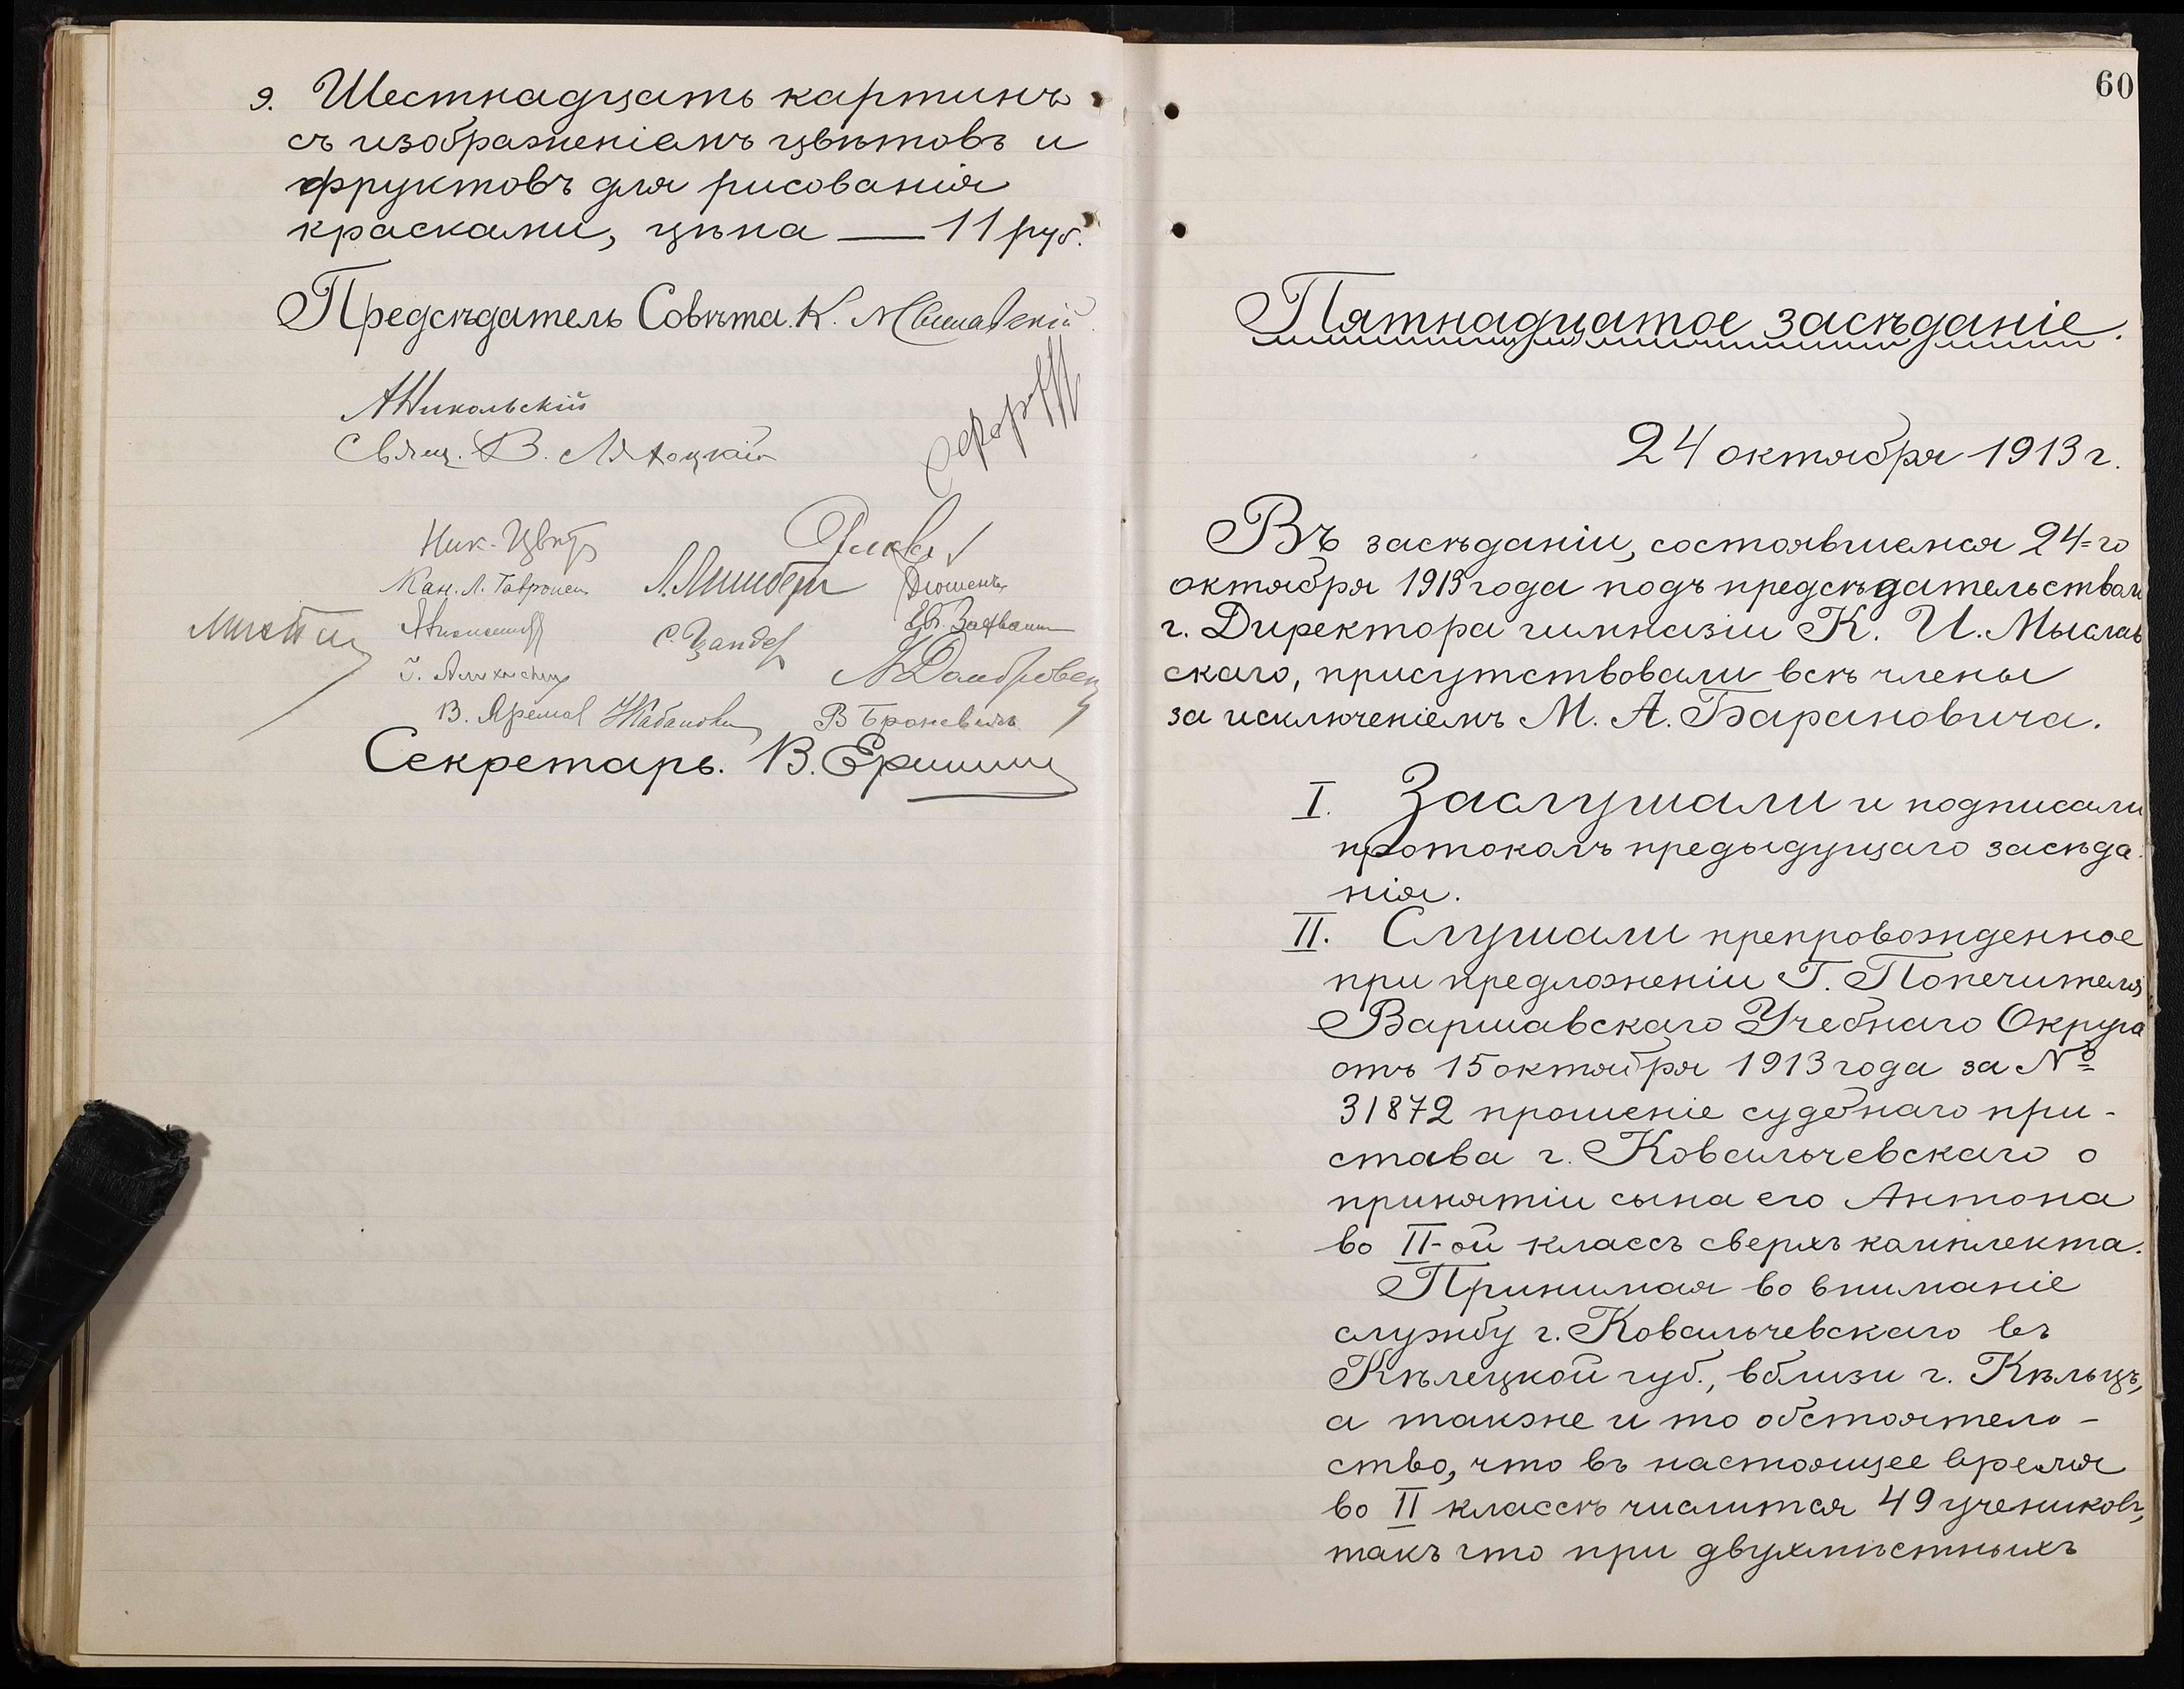 9. Шестнадцать картинъ
съ изображеніемъ цвѣтовъ и
фруктовъ для рисованія
красками, цѣна — 11 руб.
Предсѣдатель Совѣта. К. Мыславскій
А Никольскій
Свящ. В.
Ник. Цвѣтъ
Кан. Л.
С. Цандер
В.
В Броневичъ
Секретарь. В. Ершин
60
Пятнадцатое засѣданіе.
24 октября 1913 г.
Въ засѣданіи, состоявшемся 24=го
октября 1913 года подъ предсѣдательством
г. Директора гимназіи К. И. Мыслав
скаго, присутствовали всѣ члены
за исключеніемъ М. А. Барановича.
I. Заслушали и подписали
протоколъ предыдущаго засѣда
нія.
II. Слушали препровожденное
при предложеніи Г. Попечителя
Варшавскаго Учебнаго Округа
отъ 15 октября 1913 года за №
31872 прошеніе судебнаго при-
става г. Ковальчевскаго о
принятіи сына его Антона
во II-ой классъ сверхъ комплекта.
Принимая во вниманіе
службу г. Ковальчевскаго въ
Кѣлецкой губ., вблизи г. Кѣльцъ,
а также и то обстоятель-
ство, что въ настоящее время
во II классѣ числится 49 учениковъ,
такъ что при двухмѣстныхъ